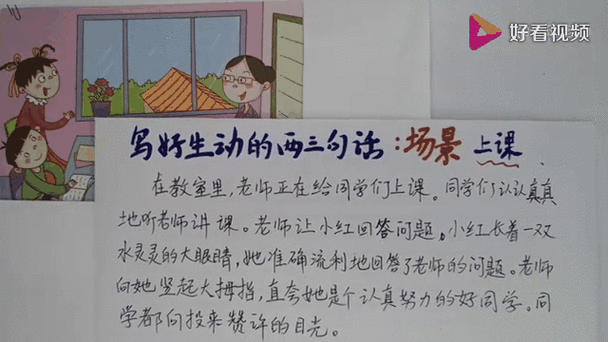 好看视频
写好生动的两三句话：场景 上课
在教室里，老师正在给同学们上课。同学们认认真真
地听老师讲课。老师让小红回答问题。小红长着一双
水灵灵的大眼睛，她准确流利地回答了老师的问题。老师
向她竖起大拇指，直夸她是个认真努力的好同学。同
学都向投来赞许的目光。